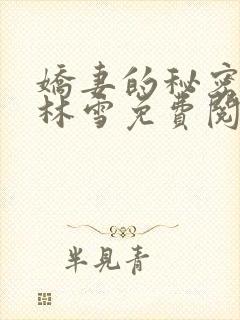 嬌妻的秘密
林雪免費閱
半見青